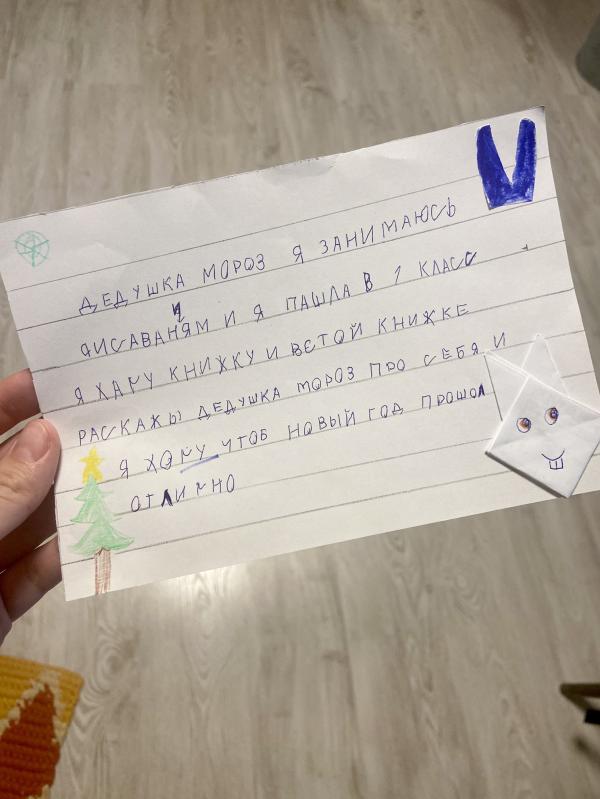 ДЕДУШКА МОРОЗ Я ЗАНИМАЮСЬ
РИСАВАНИЯМ И Я ПАШЛА В 1 КЛАСС
Я ХАЧУ КНИЖКУ И ВЕТОЙ КНИЖКЕ
РАСКАЖЫ ДЕДУШКА МОРОЗ ПРО СЕБЯ И
Я ХОЧУ ЧТОБ НОВЫЙ ГОД ПРОШОЛ
ОТЛИЧНО